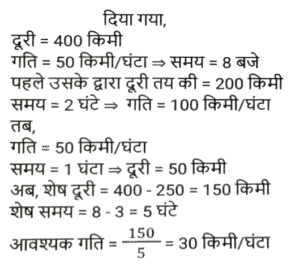 दिया गया,
दूरी = 400 किमी
गति = 50 किमी/घंटा ⇒ समय = 8 बजे
पहले उसके द्वारा दूरी तय की = 200 किमी
समय = 2 घंटे ⇒ गति = 100 किमी/घंटा
तब,
गति = 50 किमी/घंटा
समय = 1 घंटा ⇒ दूरी = 50 किमी
अब, शेष दूरी = 400 - 250 = 150 किमी
शेष समय = 8 - 3 = 5 घंटे
आवश्यक गति = 150/5 = 30 किमी/घंटा